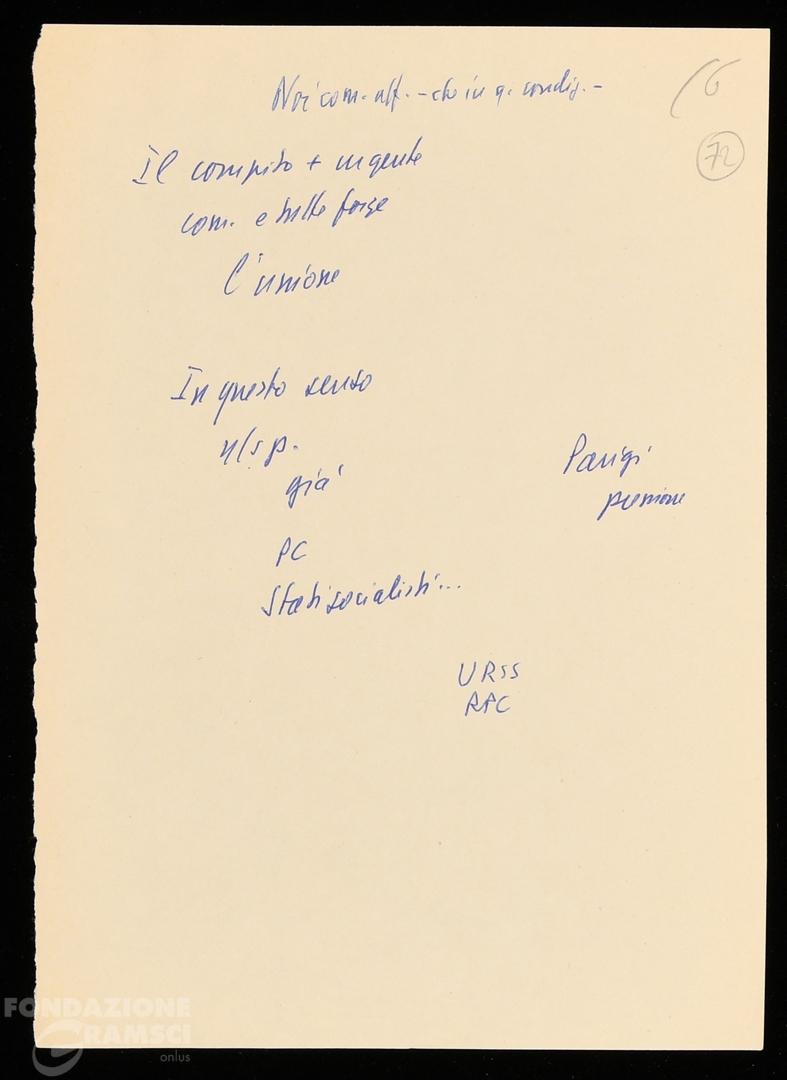 Noi com. aff. - che in q. condiz. -
6
72
Il compito + urgente
com. e tutte forze
l'unione
In questo senso
n/s p.
già
Parigi
PC
Stati socialisti...
URSS
RPC
FONDAZIONE
GRAMSCI
onlus